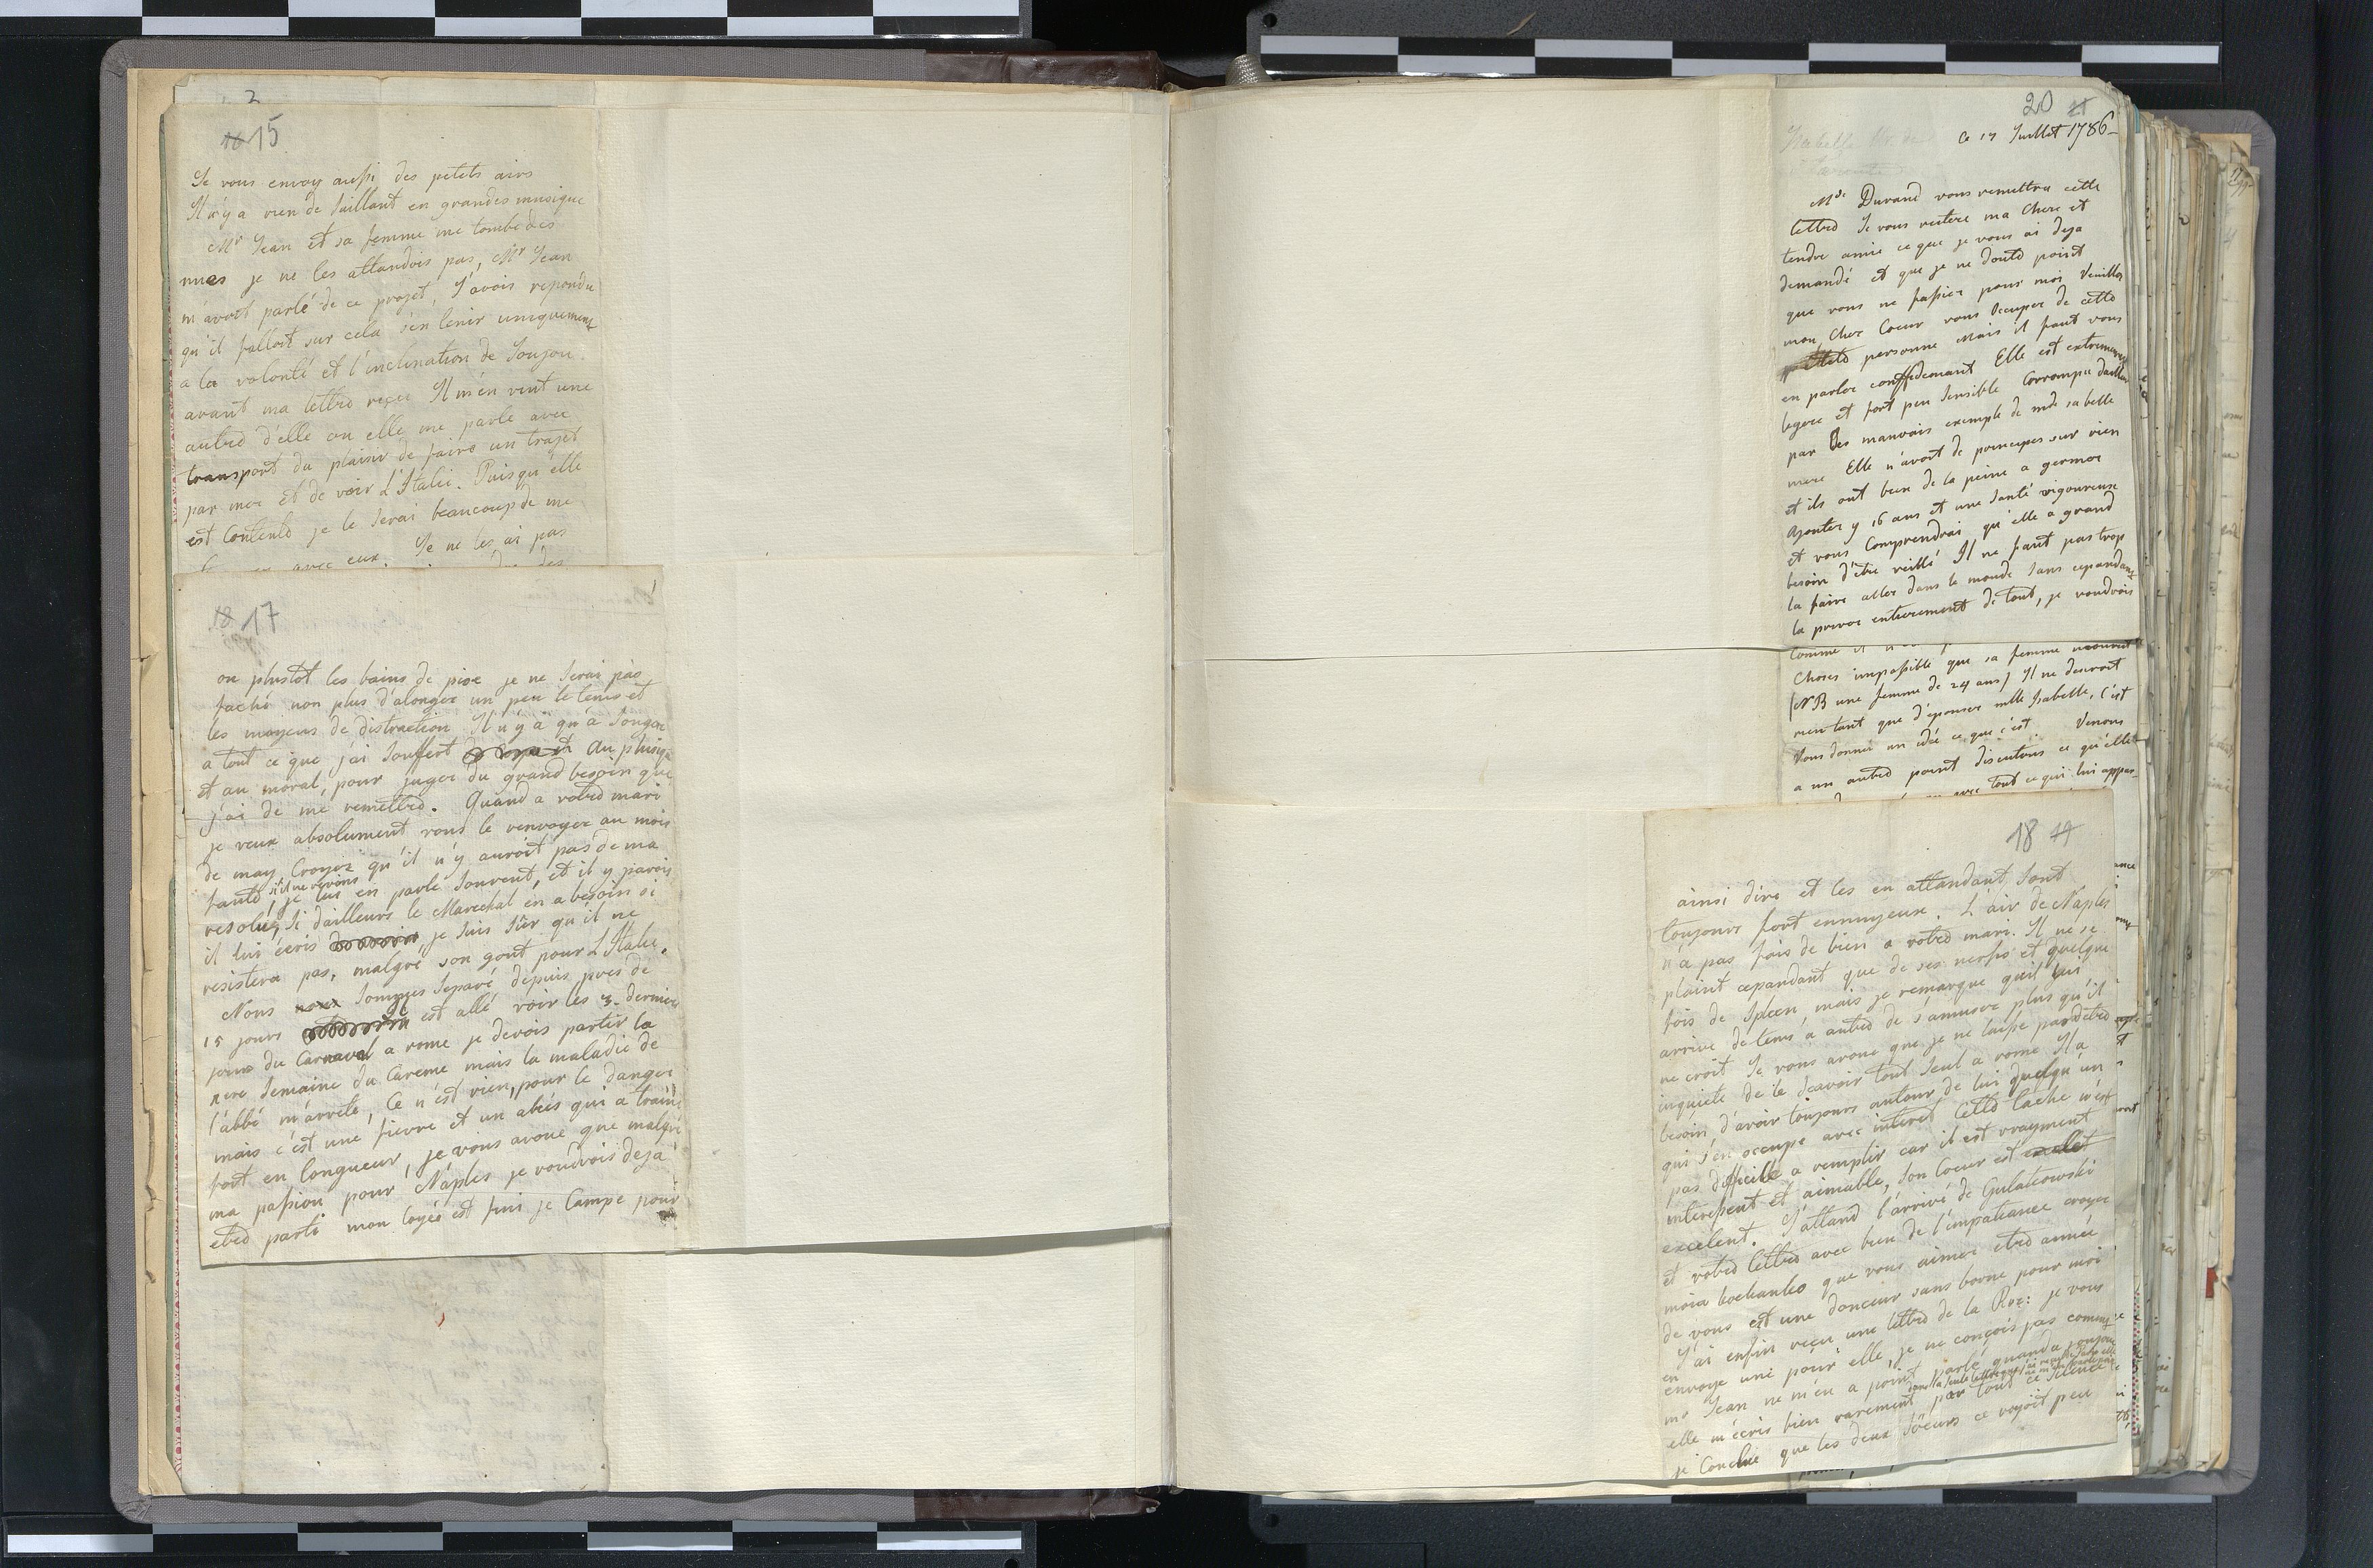 15
Je vous envoy aussi des petits airs
Il n'y a rien de saillant en grandes musique
Mr Jean et sa femme me tombe des
nues je ne les attandois pas, Mr Jean
m'avoit parlé de ce projet, J'avois repondu
qu'il falloit sur cela s'en tenir uniquement
a la volonté et l'inclination de Soujou.
avant ma lettre reçue Il m'en vint une
autre d'elle ou elle me parle avec
transport du plaisir de faire un trajet
par mer et de voir L'Italie. Puisqu'elle
est contente je le serai beaucoup de me
avec eux. Je ne les ai pas
18 17
ou plustot les bains de pise je ne serai pas
faché non plus d'alonger un peu le tems et
les moyens de distraction Il n'y a qu'a songer
a tout ce que j'ai souffert au phisique
et au moral, pour juger du grand besoin que
j'ai de me remettre. Quand a votre mari
je veux absolument vous le renvoyer au mois
de may, Croyez qu'il n'y auroit pas de ma
faute, s'il ne revient
je lui en parle souvent, et il y paroit
resolu, Si dailleurs le Marechal en a besoin si
il lui ecris je suis sûr qu'il ne
resistera pas, malgré son gout pour L'Italie.
Nous sommes separé depuis pres de
15 jours est allé voir les 3. dernier
jours du Carnaval a rome je devois partir la
1ere semaine du Careme mais la maladie de
l'abbé m'arrete, Ce n'est rien, pour le danger
mais c'est une fievre et un abcés qui a trainé
fort en longueur, je vous avoue que malgré
ma passion pour Naples je voudrois deja
etre parti mon loyer est fini je Campe pour
20 21
Ce 17 Juillet 1786
Mde Durand vous remettra cette
lettre Je vous reitere ma chere et
tendre amie ce que je vous ai deja
demandé et que je ne doute point
que vous ne fassiez pour moi Veuillez
mon cher Coeur vous occuper de cette
personne Mais il faut vous
en parler confidemant Elle est extremement
legere et fort peu sensible Corrompue dailleurs
par les mauvais exemple de mde sa belle
mere Elle n'avoit de principes sur rien
et ils ont bien de la peine a germer
Ajoutez y 16 ans et une santé vigoureuse
et vous Comprendrai qu'elle a grand
besoin d'être veillé Il ne faut pas trop
la faire aller dans le monde sans cependant
la priver entierement de tout, je voudrois
Comme il
Choses impossible que sa femme mourut
(NB une femme de 24 ans) Il ne desiroit
rien tant que d'epouser mlle Isabelle, C'est
Vous donner un idée ce que c'est Venons
a un autre point discutons ce qu'elle
avec tout ce qui lui appar-
18 19
ainsi dire et les en attandant sont
toujours fort ennuyeux. L'air de Naples
n'a pas fais de bien a votre mari. Il ne se
plaint cepandant que de ses nerfs et quelque
fois de Spleen, mais je remarque qu'il lui
arrive de tems a autre de s'amuser plus qu'il
ne croit Je vous avoue que je ne laisse pas detre
inquiete de le scavoir tout seul a rome Il a
besoin d'avoir toujours autour de lui quelqu'un
qui s'en occupe avec interet Cette tache n'est
pas difficille a remplir car il est vrayment
interessent et aimable, son Coeur est
excelent. J'attand l'arrivé de Gulatcowski
et votre lettre avec bien de l'impatiance croyez
moia kochanko que vous aimer etre aimée
de vous est une douceur sans borne pour moi
J'ai enfin reçu une lettre de la Roz: je vous
en
envoye une pour elle, je ne conçois pas comment
mr Jean ne m'en a point parlé quand a soujou
elle m'ecris bien rarement par tout ce silence
je Conclue que les deux Soeurs ce voyoit peu